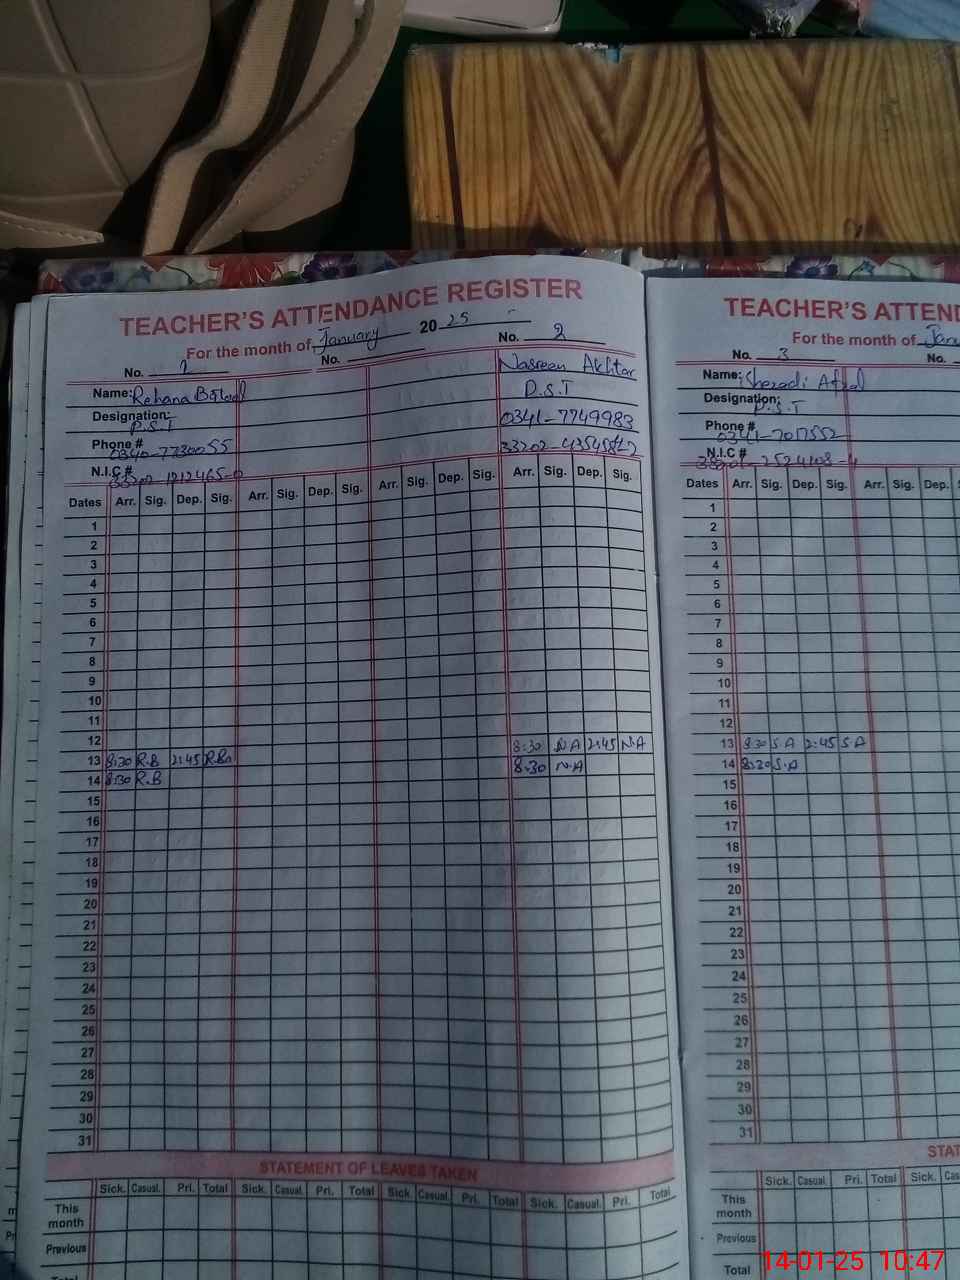 TEACHER'S ATTENDANCE REGISTER
For the month of January 2025
No. 1 No. No. 2
Name: Rehana Nasreen Akhtar
Designation: P.S.T P.S.T
Phone # 0340-7730055 0341-7749983
N.I.C # 33202-1212465-0 33202-
Dates Arr. Sig. Dep. Sig. Arr. Sig. Dep. Sig. Arr. Sig. Dep. Sig. Arr. Sig. Dep. Sig.
1
2
3
4
5
6
7
8
9
10
11
12
13 8:30 R.B 2:45 8:30 N.A 2:45 N.A
14 8:30 R.B 8:30 N.A
15
16
17
18
19
20
21
22
23
24
25
26
27
28
29
30
31
STATEMENT OF LEAVES TAKEN
Sick. Casual. Pri. Total Sick. Casual. Pri. Total Sick. Casual. Pri. Total Sick. Casual. Pri. Total
This month
Previous
Total
TEACHER'S ATTEND
For the month of Janu
No. 3 No.
Name: Afzal
Designation: P.S.T
Phone # 0341-7017552
N.I.C #
Dates Arr. Sig. Dep. Sig. Arr. Sig. Dep.
1
2
3
4
5
6
7
8
9
10
11
12
13 8:30 S.A 2:45 S.A
14 8:30 S.A
15
16
17
18
19
20
21
22
23
24
25
26
27
28
29
30
31
STAT
Sick. Casual. Pri. Total Sick.
This month
Previous
Total
14-01-25 10:47